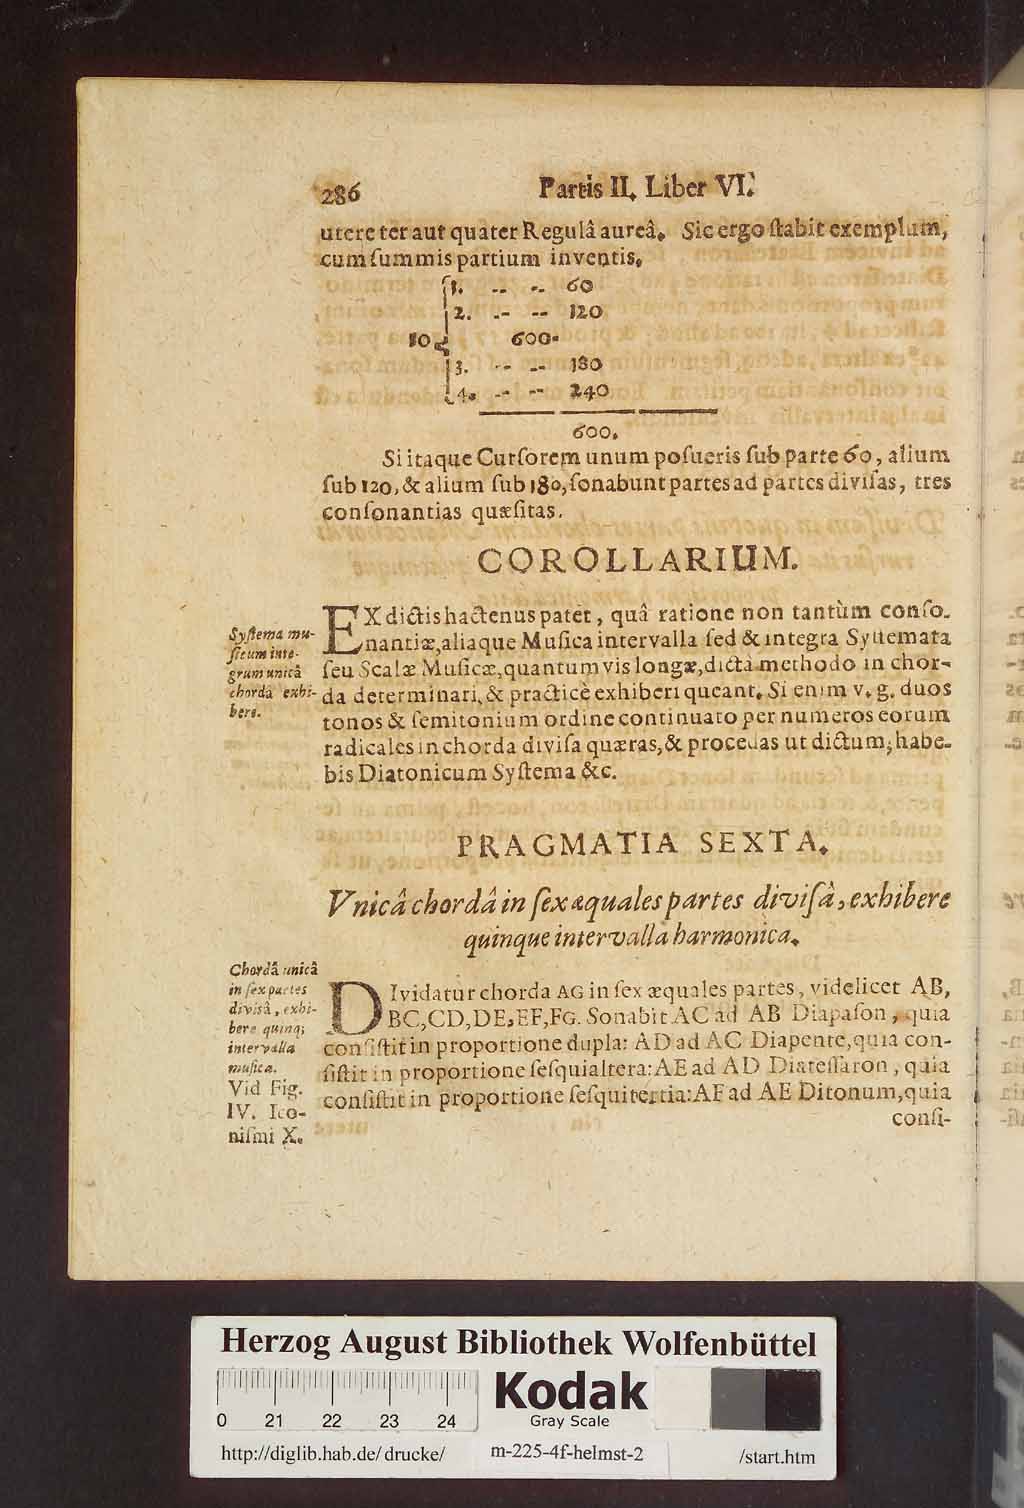 286 Partis II. Liber VI.
utere ter aut quater Regulâ aureâ. Sic ergo ſtabit exemplum,
cum ſummis partium inventis.
1. -- -- 60
2. -- -- 120
10 600.
3. -- -- 180
4. -- -- 240
600.
Si itaque Curſorem unum poſueris ſub parte 60, alium
ſub 120, & alium ſub 180, ſonabunt partes ad partes diviſas, tres
conſonantias quæſitas.
COROLLARIUM.
Syſtema mu-
ſicum inte-
grum unicâ
chordâ exhi-
bere.
EX dictis hactenus patet, quâ ratione non tantùm conſo-
nantiæ, aliaque Muſica intervalla ſed & integra Syſtemata
ſeu Scalæ Muſicæ, quantumvis longæ, dictâ methodo in chor-
da determinari, & practicè exhiberi queant. Si enim v. g. duos
tonos & ſemitonium ordine continuato per numeros eorum
radicales in chorda diviſa quæras, & procedas ut dictum; habe-
bis Diatonicum Syſtema &c.
PRAGMATIA SEXTA.
Vnicâ chordâ in ſex æquales partes diviſâ, exhibere
quinque intervalla harmonica.
Chordâ unicâ
in ſex partes
diviſâ, exhi-
bere quinq;
intervalla
muſica.
Vid Fig.
IV. Ico-
niſmi X.
DIvidatur chorda AG in ſex æquales partes, videlicet AB,
BC, CD, DE, EF, FG. Sonabit AC ad AB Diapaſon, quia
conſiſtit in proportione dupla: AD ad AC Diapente, quia con-
ſiſtit in proportione ſeſquialtera: AE ad AD Diateſſaron, quia
conſiſtit in proportione ſeſquitertia: AF ad AE Ditonum, quia
conſi-
Herzog August Bibliothek Wolfenbüttel
Kodak
Gray Scale
0 21 22 23 24
http://diglib.hab.de/drucke/ m-225-4f-helmst-2 /start.htm